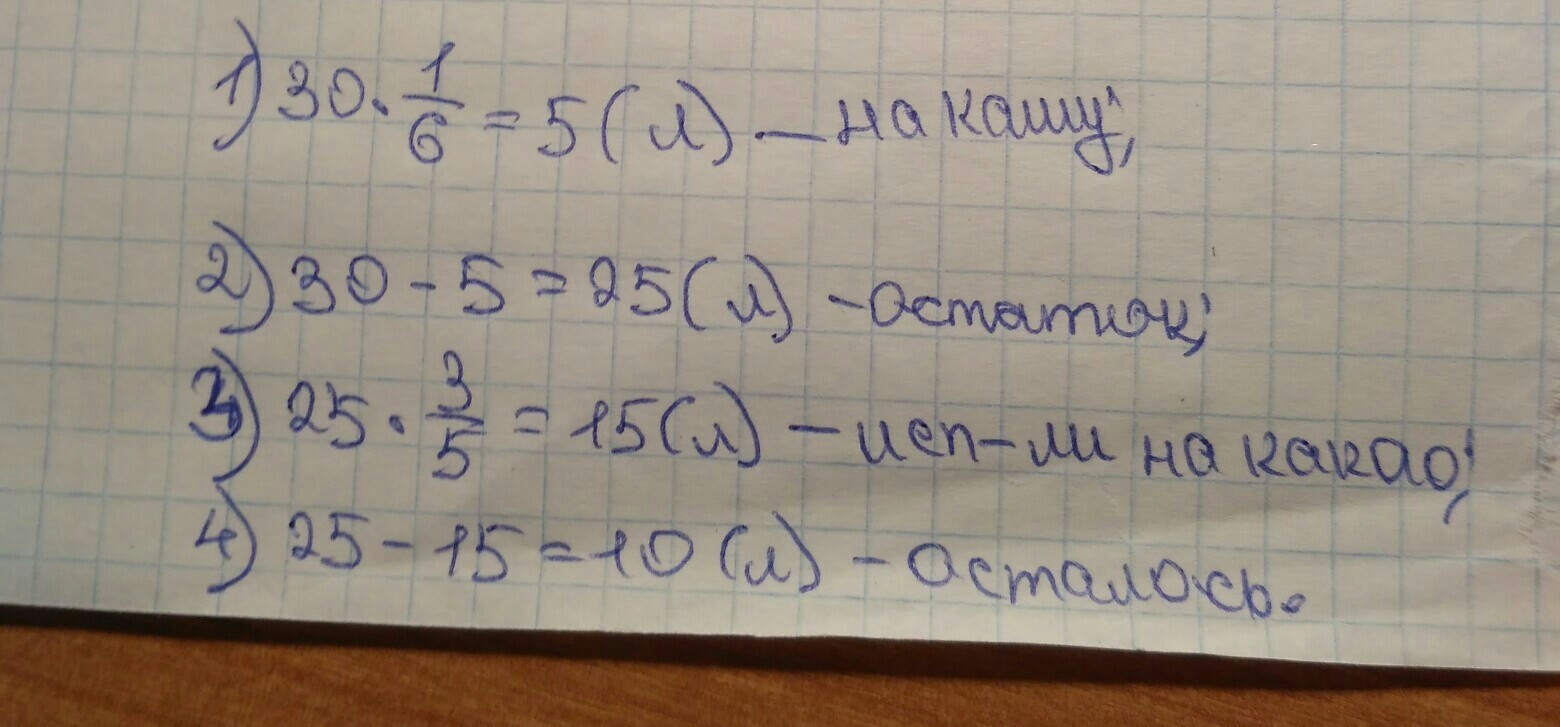 1) 30 · 1/6 = 5 (л) — на кашу;
2) 30 - 5 = 25 (л) - остаток;
3) 25 · 3/5 = 15 (л) — исп-ли на какао;
4) 25 - 15 = 10 (л) - осталось.